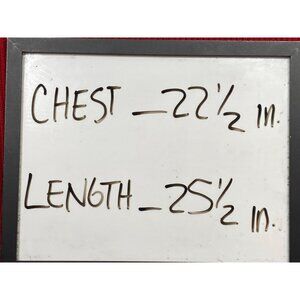 CHEST – 22 1/2 in.
LENGTH – 25 1/2 in.